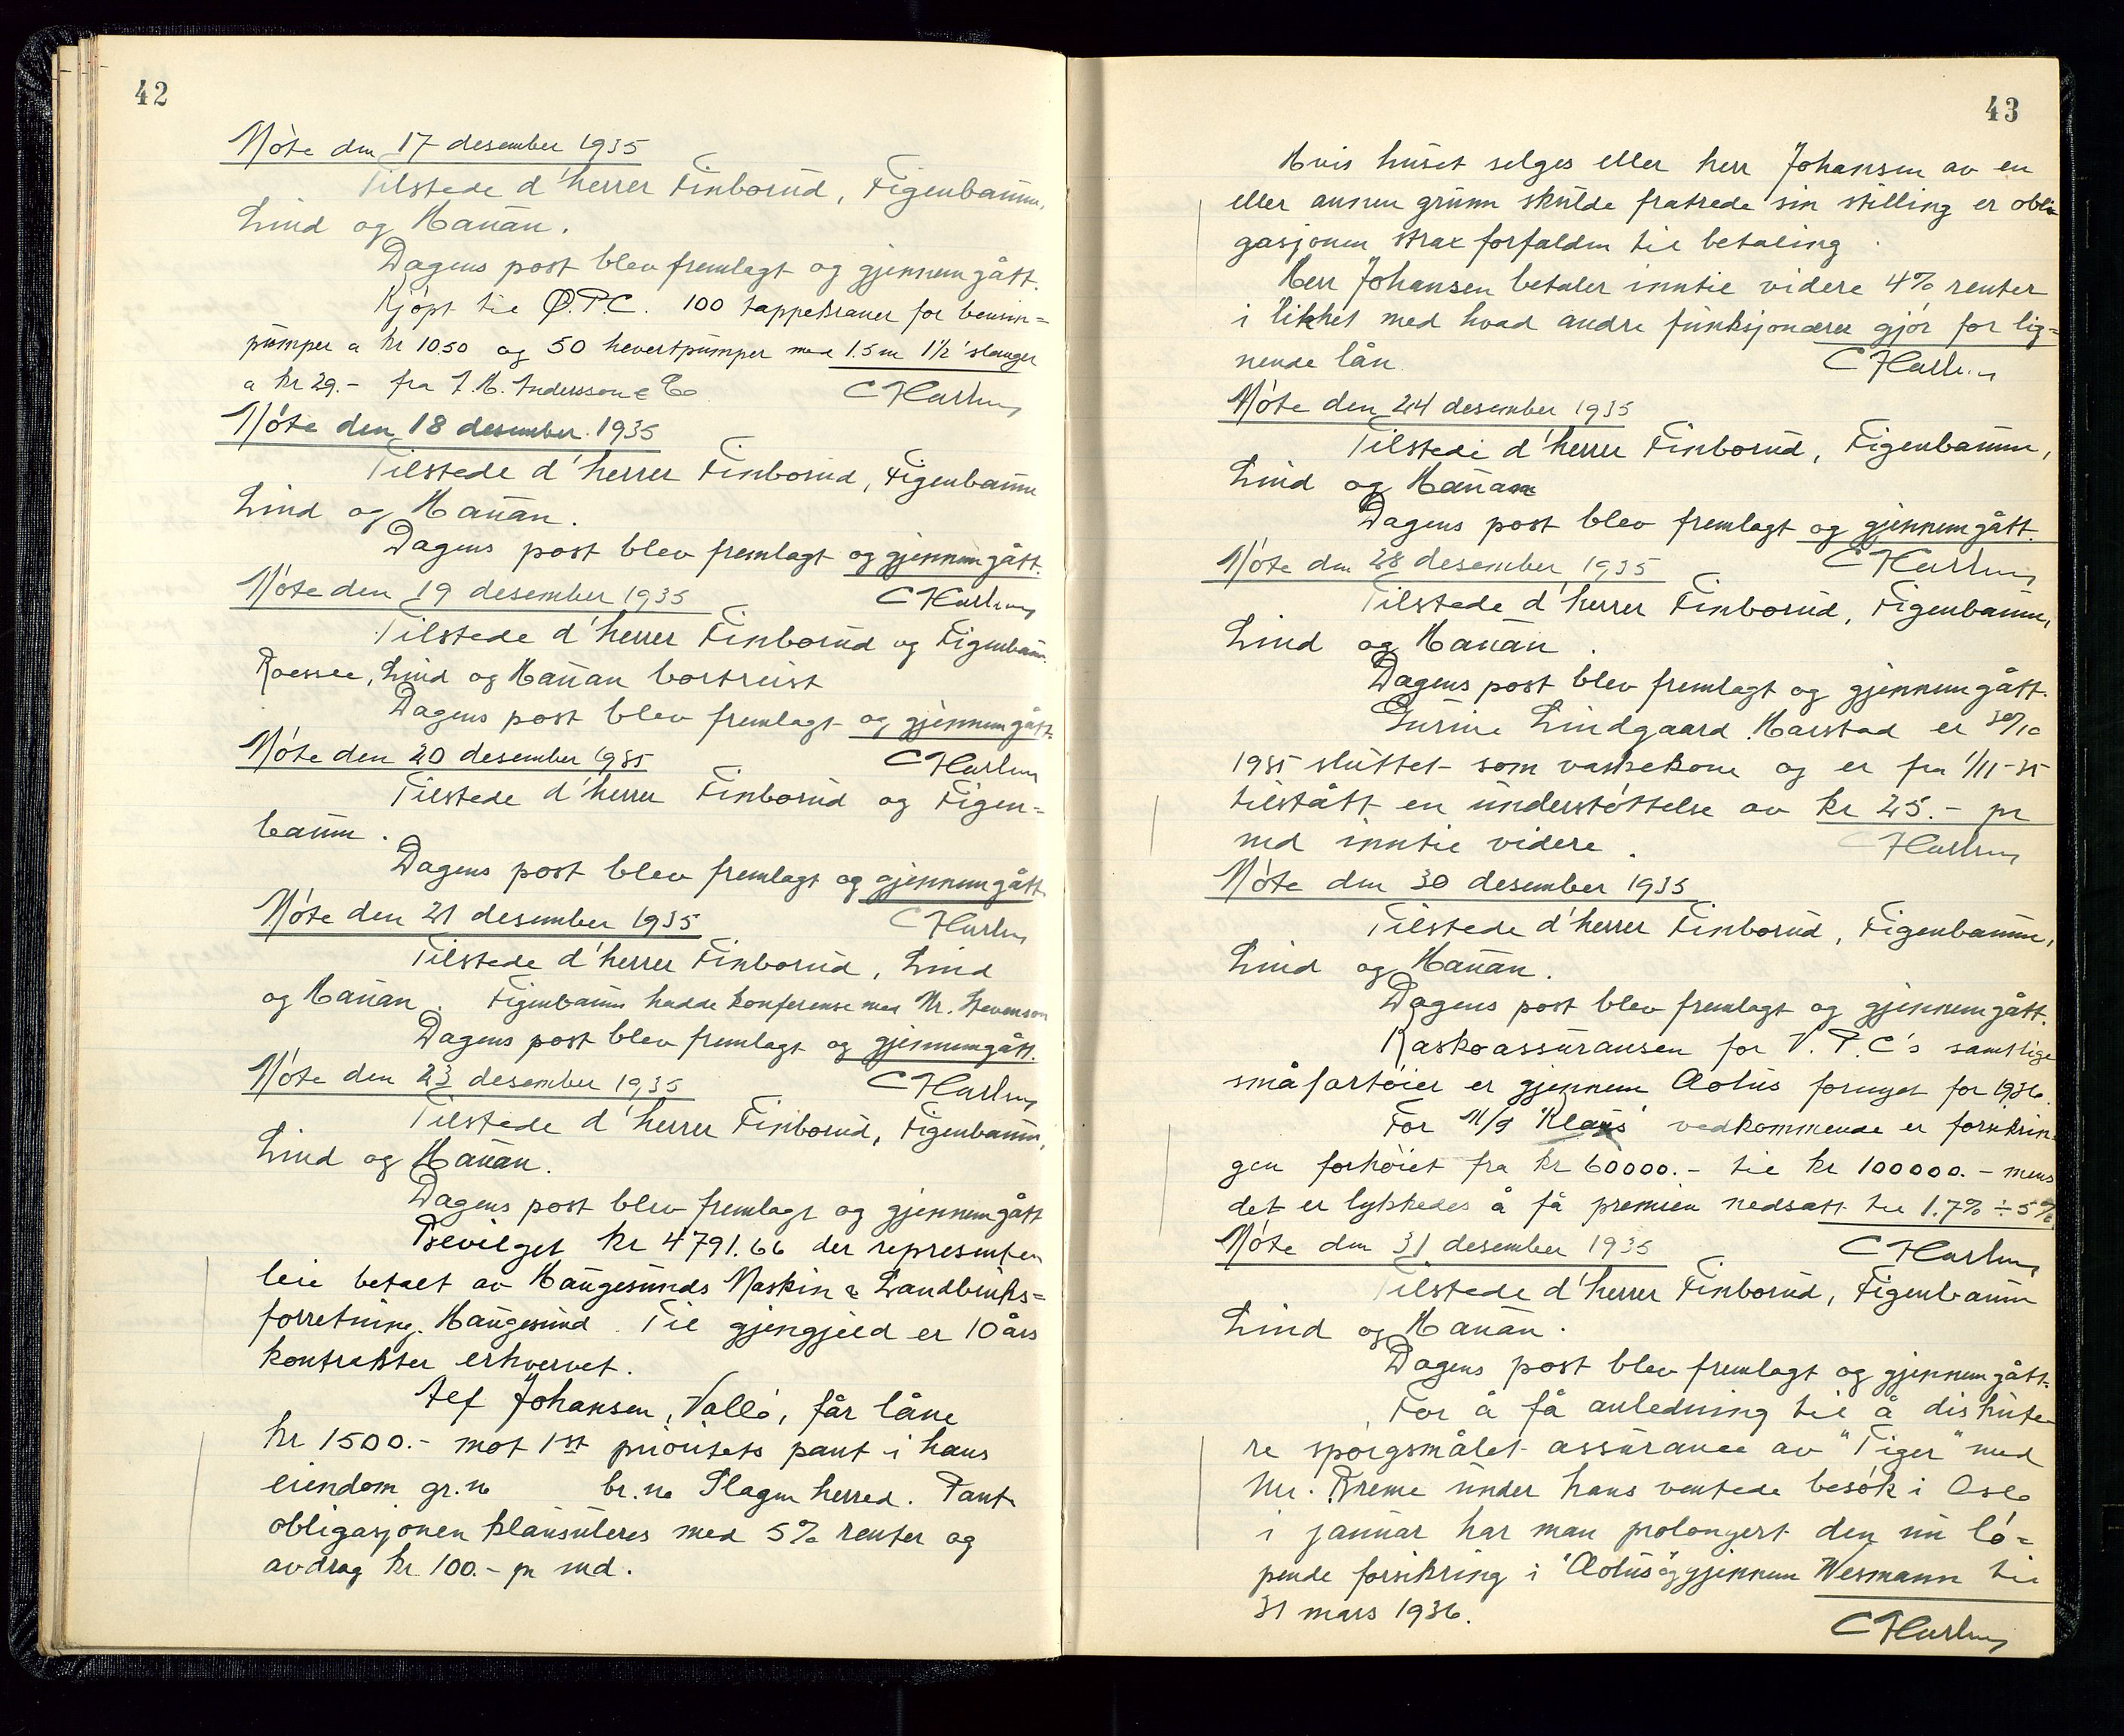 42
Møte den 17 desember 1935
Tilstede d'herrer Finborud, Figenbaum,
Lind og Hauan.
Dagens post blev fremlagt og gjennemgått.
Kjøpt til Ø.P.C. 100 tappekraner for bensin=
pumper a kr 10.50 og 50 hevertpumper med 1.5 m 1½" slanger
a kr 29.- fra J. H. Andersson & Co
Møte den 18 desember 1935
Tilstede d'herrer Finborud, Figenbaum
Lind og Hauan.
Dagens post blev fremlagt og gjennemgått.
Møte den 19 desember 1935
Tilstede d'herrer Finborud og Figenbaum.
Lind og Hauan bortreist
Dagens post blev fremlagt og gjennemgått.
Møte den 20 desember 1935
Tilstede d'herrer Finborud og Figen=
baum.
Dagens post blev fremlagt og gjennemgått.
Møte den 21 desember 1935
Tilstede d'herrer Finborud, Lind
og Hauan. Figenbaum hadde konferense med Mr. Stevenson
Dagens post blev fremlagt og gjennemgått.
Møte den 23 desember 1935
Tilstede d'herrer Finborud, Figenbaum,
Lind og Hauan.
Dagens post blev fremlagt og gjennemgått
Bevilget kr 4791.66 der representerer
leie betalt av Haugesunds Maskin & Landbruks=
forretning, Haugesund. Til gjengjeld er 10 års
kontrakter erhvervet.
Alf Johansen, Vallø, får låne
kr 1500.- mot 1st prioritets pant i hans
eiendom gr.no br.no Slagen herred. Pant
obligasjonen klausuleres med 5% renter og
avdrag kr. 100.- pr md.
43
Hvis huset selges eller herr Johansen av en
eller annen grunn skulde fratrede sin stilling er obli-
gasjonen strax forfalden til betaling.
Herr Johansen betaler inntil videre 4% renter
i likhet med hvad andre funksjonærer gjør for lig=
nende lån.
Møte den 24 desember 1935
Tilstede d'herrer Finborud, Figenbaum,
Lind og Hauan
Dagens post blev fremlagt og gjennemgått.
Møte den 28 desember 1935
Tilstede d'herrer Finborud, Figenbaum,
Lind og Hauan.
Dagens post blev fremlagt og gjennemgått.
Lindgaard Harstad er 30/10
1935 sluttet som vaskekone og er fra 1/11-35
tilstått en understøttelse av kr 25.- pr
md inntil videre.
Møte den 30 desember 1935
Tilstede d'herrer Finborud, Figenbaum,
Lind og Hauan.
Dagens post blev fremlagt og gjennemgått.
Kaskoassuransen for V.P.C's samtlige
småfartøier er gjennem Æolus fornyet for 1936.
For M/S "Klaus" vedkommende er forsikrin=
gen forhøiet fra kr 60000.- til kr 100000.- mens
det er lykkedes å få premien nedsatt til 1.7% ÷ 5%
Møte den 31 desember 1935
Tilstede d'herrer Finborud, Figenbaum
Lind og Hauan.
Dagens post blev fremlagt og gjennemgått.
For å få anledning til å diskute-
re spørgsmålet assurance av "Tiger" med
Mr. Kreme under hans ventede besøk i Oslo
i januar har man prolongert den nu lø=
pende forsikring i "Æolus" og gjennem Wesmann til
31 mars 1936.